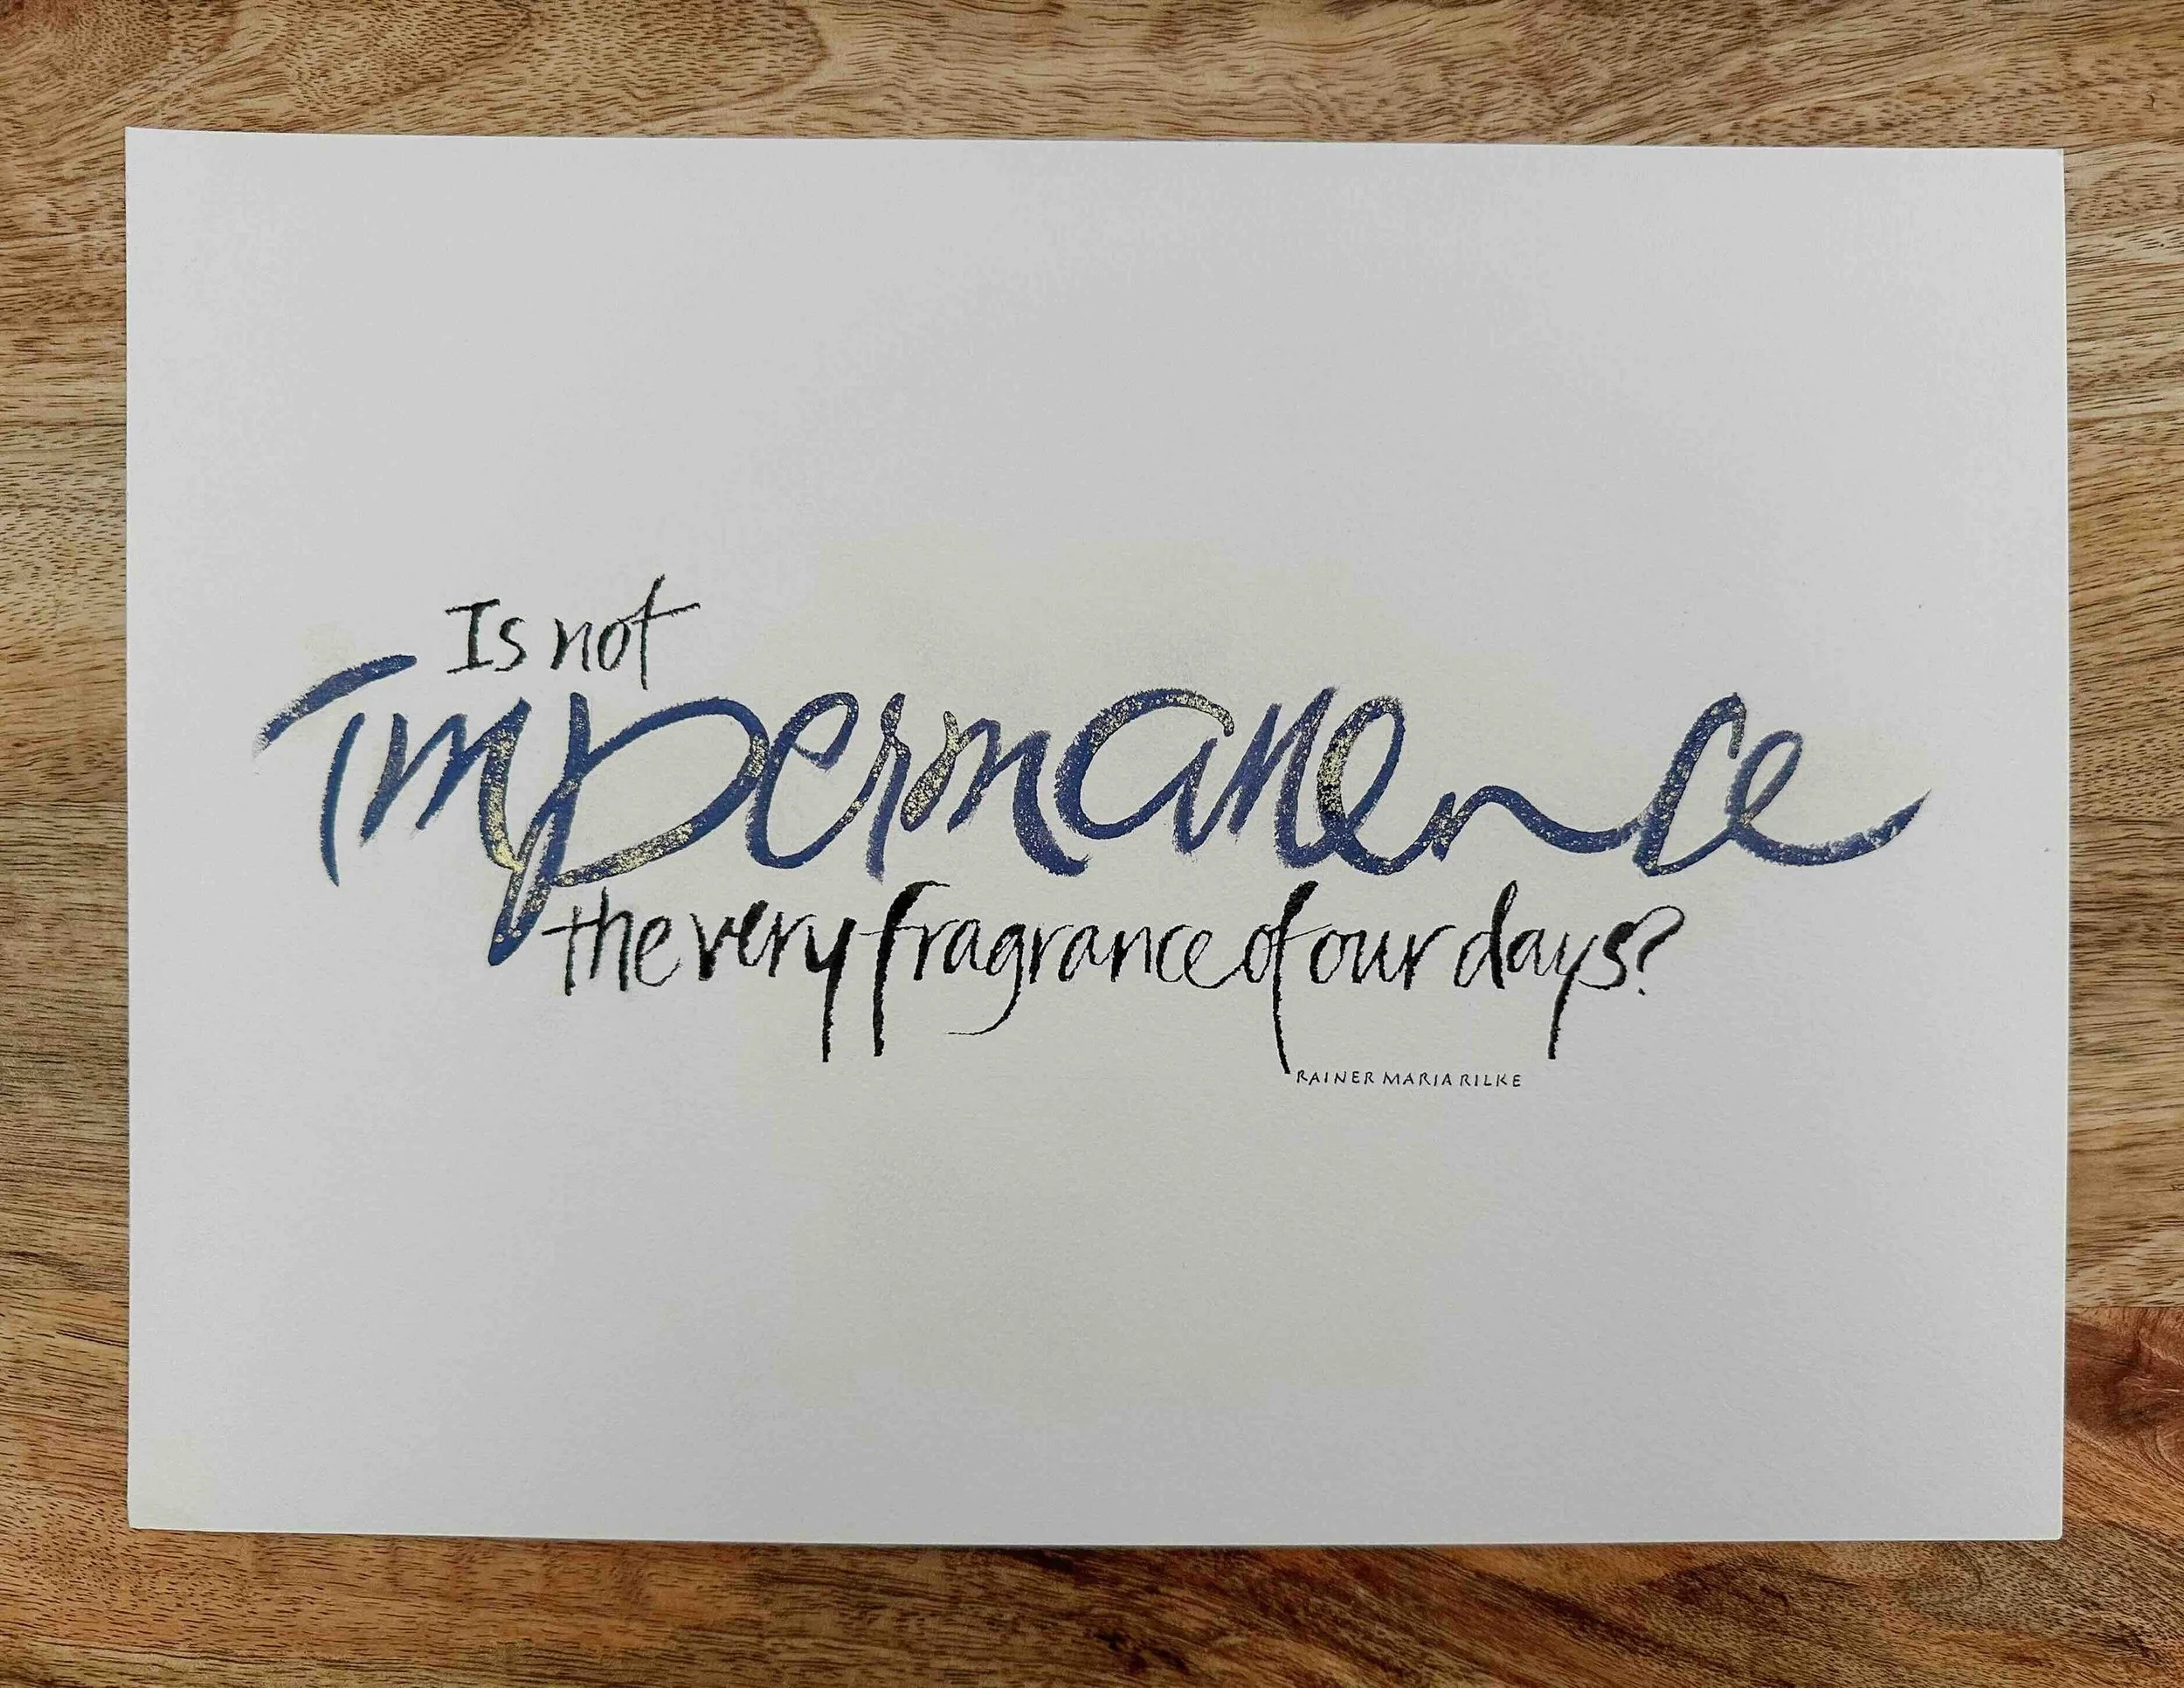 Is not
Impermanence
the very fragrance of our days?
RAINER MARIA RILKE